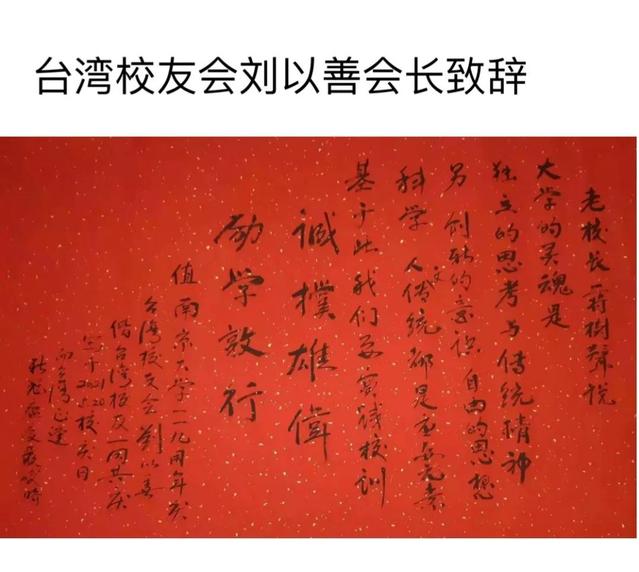 台湾校友会刘以善会长致辞
老校长蒋樹聲说
大学的灵魂是
独立的思考与传统精神
另创新的意识 自由的思想
科学 人文传统都是
基于此我们要实践校训
誠樸雄偉
励学敦行
值南京大学一一九周年庆
台湾校友会劉以善
偕台湾校友一同共庆
写于2021.5.20校庆日
而台湾正逢
疫 时